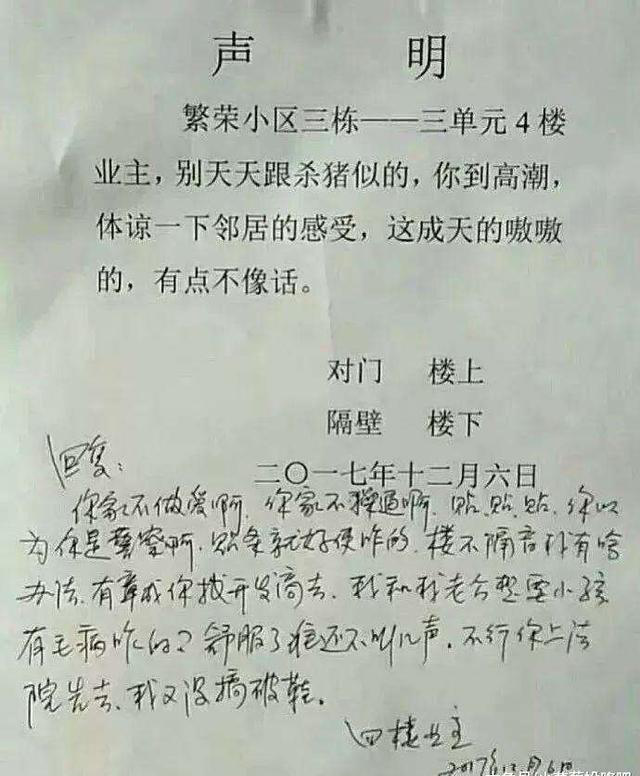 声 明
繁荣小区三栋——三单元4楼
业主，别天天跟杀猪似的，你到高潮，
体谅一下邻居的感受，这成天的嗷嗷
的，有点不像话。
对门 楼上
隔壁 楼下
二〇一七年十二月六日
回复：
你家不做爱啊，你家不操逼啊，贴，贴，贴，你以
为你是警察啊，贴条就好使咋的，楼不隔音朴有啥
办法，有章成你找开发商去，我和我老公想要小孩
有毛病咋的？舒服了谁还不叫几声，不行你上法
院告去，我又没搞破鞋。
四楼业主
2017年12月6日